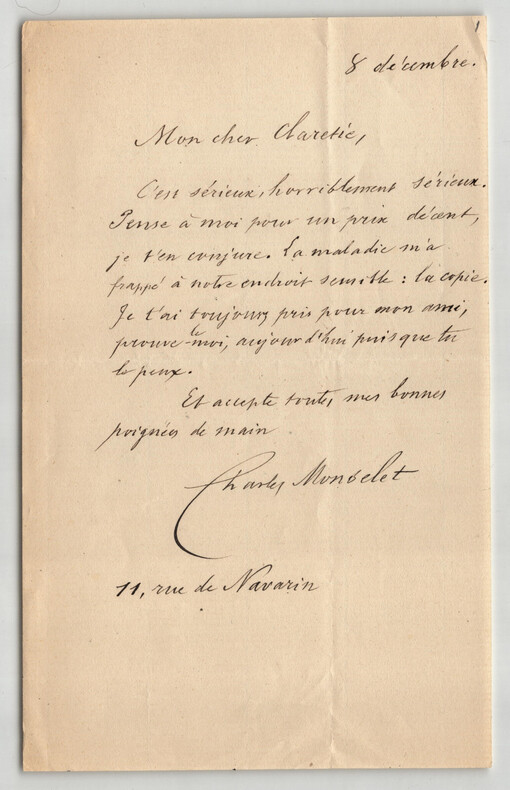 1
8 décembre.
Mon cher Claretie,
C'est sérieux, horriblement sérieux.
Pense à moi pour un prix décent,
je t'en conjure. La maladie m'a
frappé à notre endroit sensible : la copie.
Je t'ai toujours pris pour mon ami,
prouve-le moi, aujourd'hui puisque tu
le peux.
Et accepte toutes mes bonnes
poignées de main
Charles Monselet
11, rue de Navarin